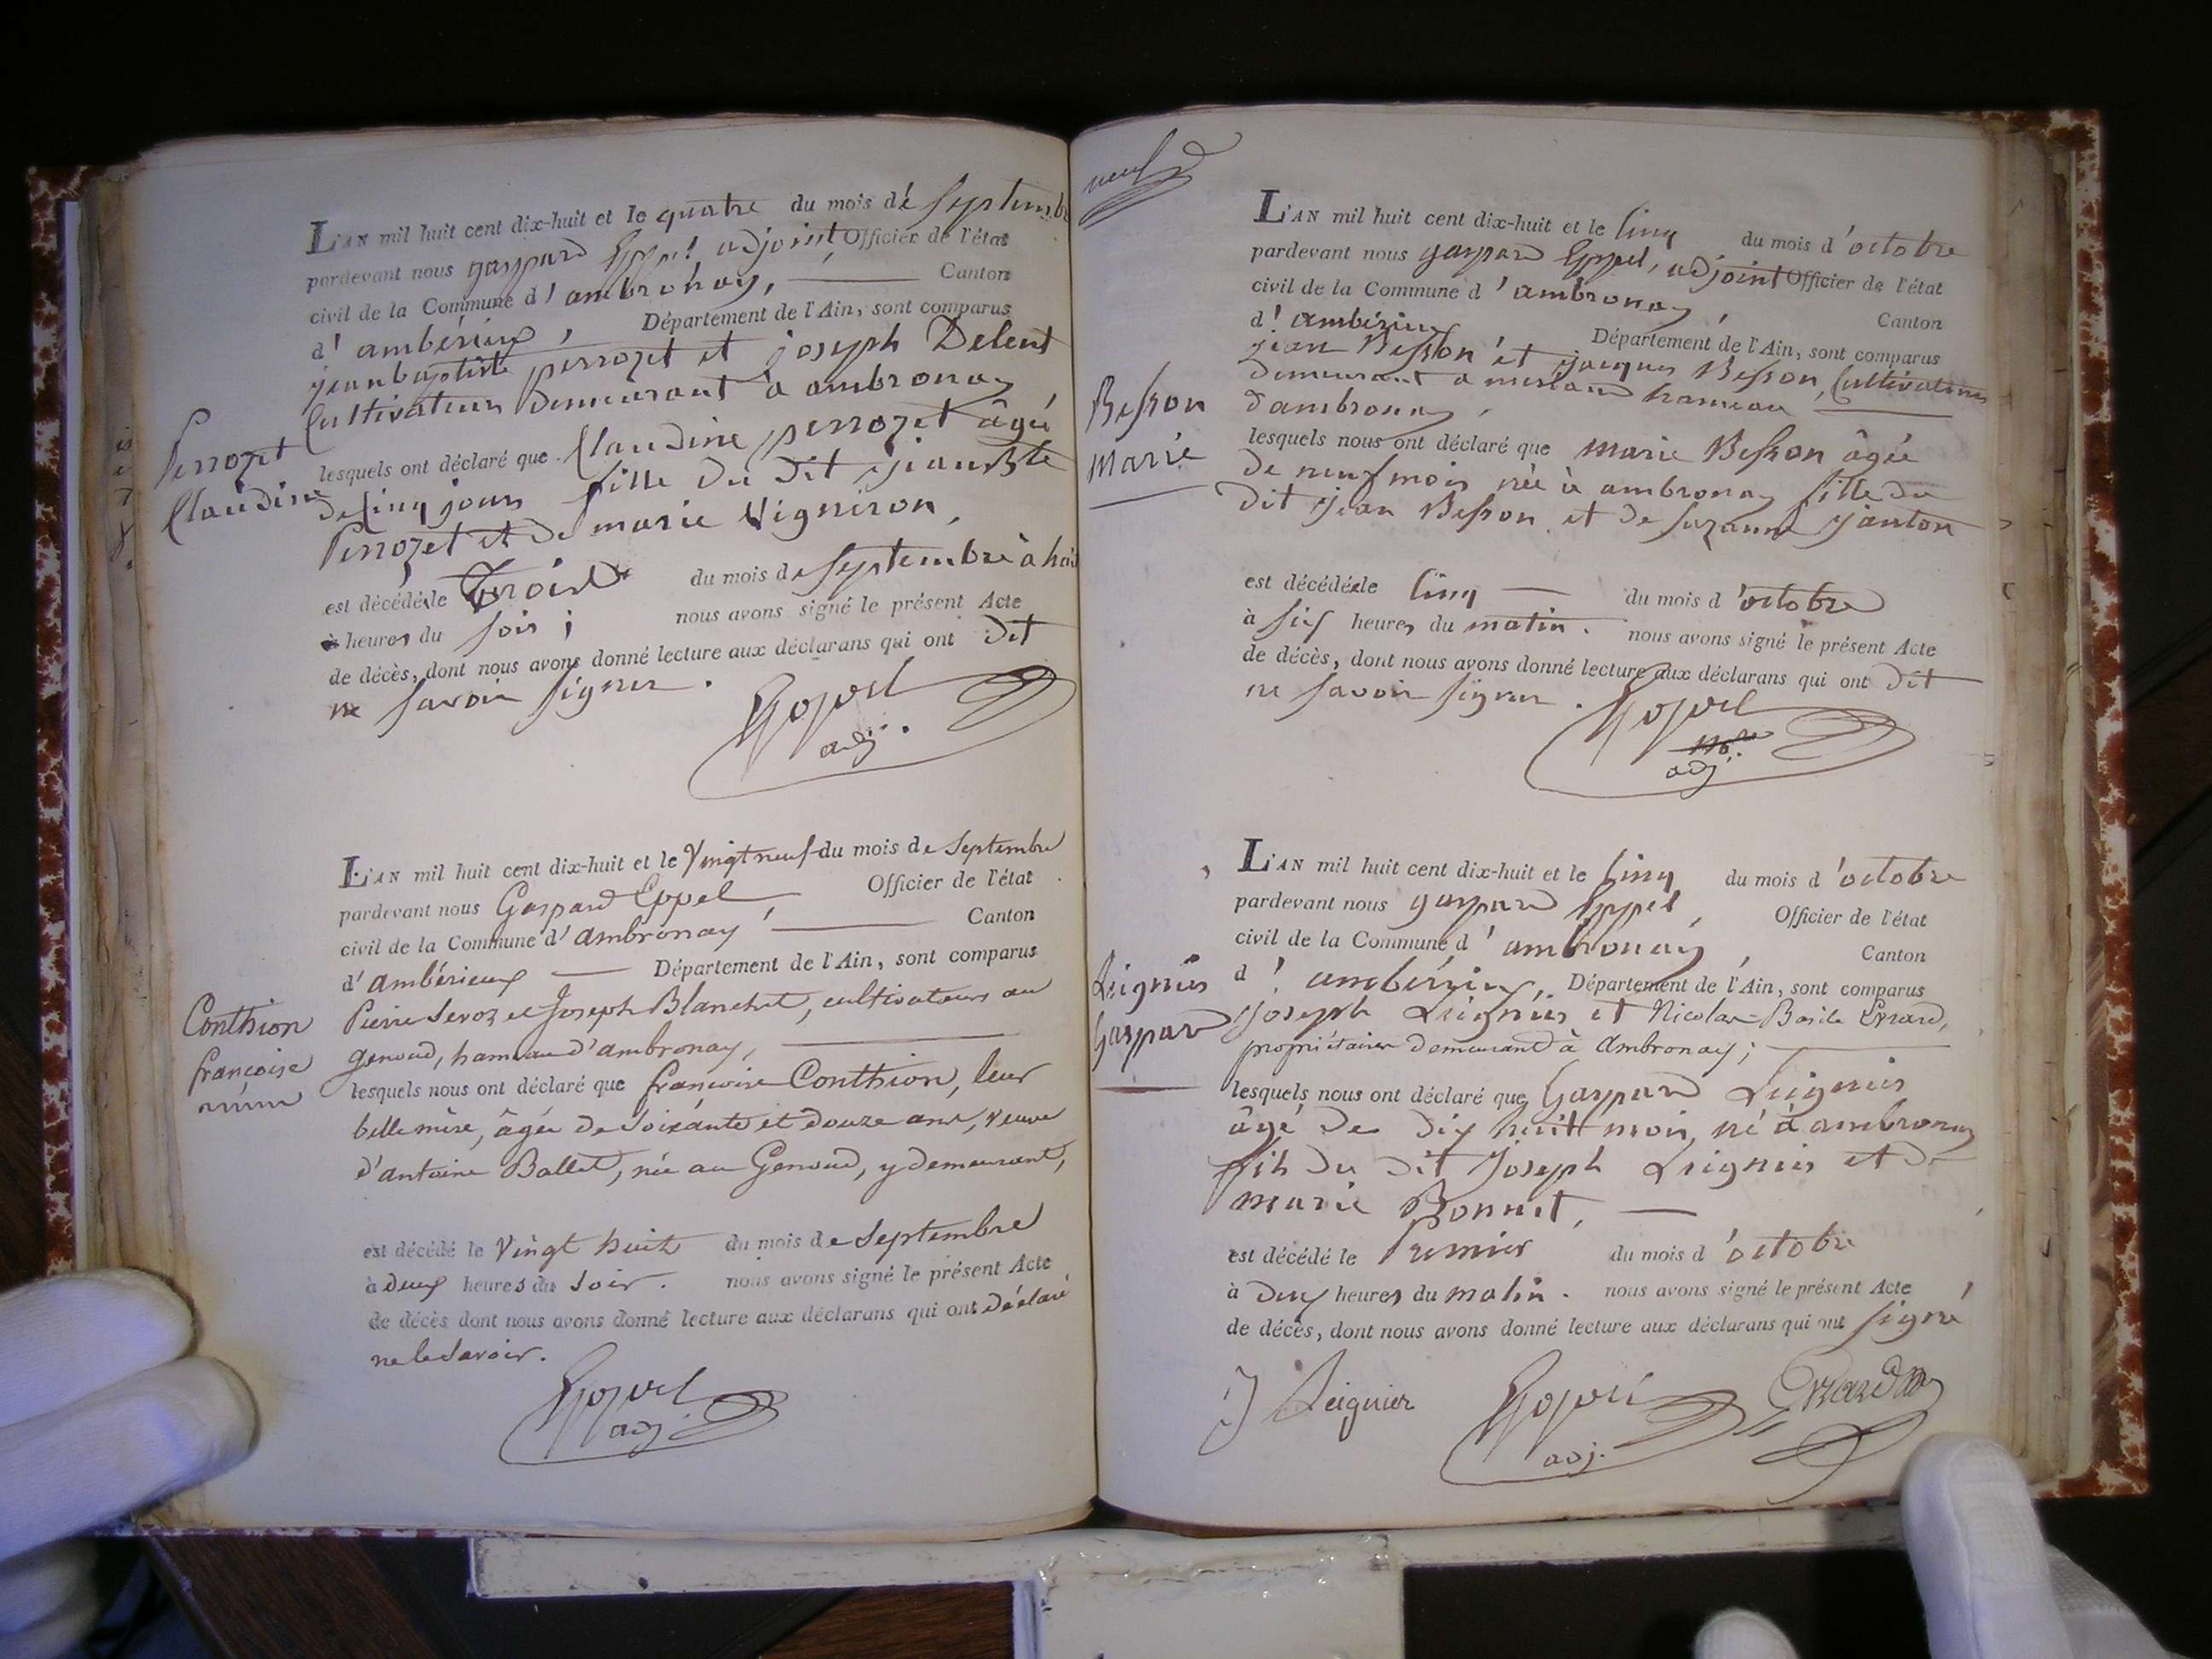 L'AN mil huit cent dix-huit et le quatre du mois de Septembre
pardevant nous gaspard Eppel adjoint, Officier de l'état
civil de la Commune d'ambronay, Canton
d'ambérieux, Département de l'Ain, sont comparus
jean baptiste perrozet et joseph Delent
Cultivateurs Demeurant à ambronay
Perrozet
Claudine
lesquels ont déclaré que Claudine perrozet âgée
de cinq jours fille du dit jean Bte
Perrozet et de marie Vigniron,
est décédée le Trois du mois de Septembre à huit
heures du soir; nous avons signé le présent Acte
de décès, dont nous avons donné lecture aux déclarans qui ont dit
ne savoir signer.
Eppel
adj.
L'AN mil huit cent dix-huit et le Vingt neuf du mois de Septembre
pardevant nous Gaspard Eppel, Officier de l'état
civil de la Commune d'ambronay, Canton
d'ambérieux Département de l'Ain, sont comparus
Conthion
françoise
Pierre Servoz et Joseph Blanchet, cultivateurs au
genoud, hameau d'ambronay,
lesquels nous ont déclaré que françoise Conthion, leur
belle mère, âgée de soixante et douze ans, veuve
d'antoine Ballet, née au Genoud, y demeurant,
est décédé le Vingt huit du mois de Septembre
à deux heures du soir. nous avons signé le présent Acte
de décès dont nous avons donné lecture aux déclarans qui ont déclaré
ne le savoir.
Eppel
adj.
neuf
L'AN mil huit cent dix-huit et le Cinq du mois d'octobre
pardevant nous gaspard Eppel, adjoint Officier de l'état
civil de la Commune d'ambronay, Canton
d'ambérieux Département de l'Ain, sont comparus
jean Besson et jacques Besson, Cultivateurs
demeurant a merland hameau
d'ambronay,
Besson
Marie
lesquels nous ont déclaré que marie Besson âgée
de neuf mois née à ambronay fille du
dit jean Besson et de Suzanne janton
est décédée le Cinq du mois d'octobre
à six heures du matin. nous avons signé le présent Acte
de décès, dont nous avons donné lecture aux déclarans qui ont dit
ne savoir signer.
Eppel
adj.
L'AN mil huit cent dix-huit et le Cinq du mois d'octobre
pardevant nous gaspard Eppel, Officier de l'état
civil de la Commune d'ambronay, Canton
d'ambérieux, Département de l'Ain, sont comparus
Leignier
Gaspard
joseph Leignier et Nicolas-Basile Evrard,
propriétaires demeurand à Ambronay;
lesquels nous ont déclaré que Gaspard Leignier
âgé de dix huit mois, né à ambronay
fils du dit Joseph Leignier et de
marie Bonnet,
est décédé le Premier du mois d'octobre
à deux heures du matin. nous avons signé le présent Acte
de décès, dont nous avons donné lecture aux déclarans qui ont signé
J Leignier
Eppel
adj.
Evrard